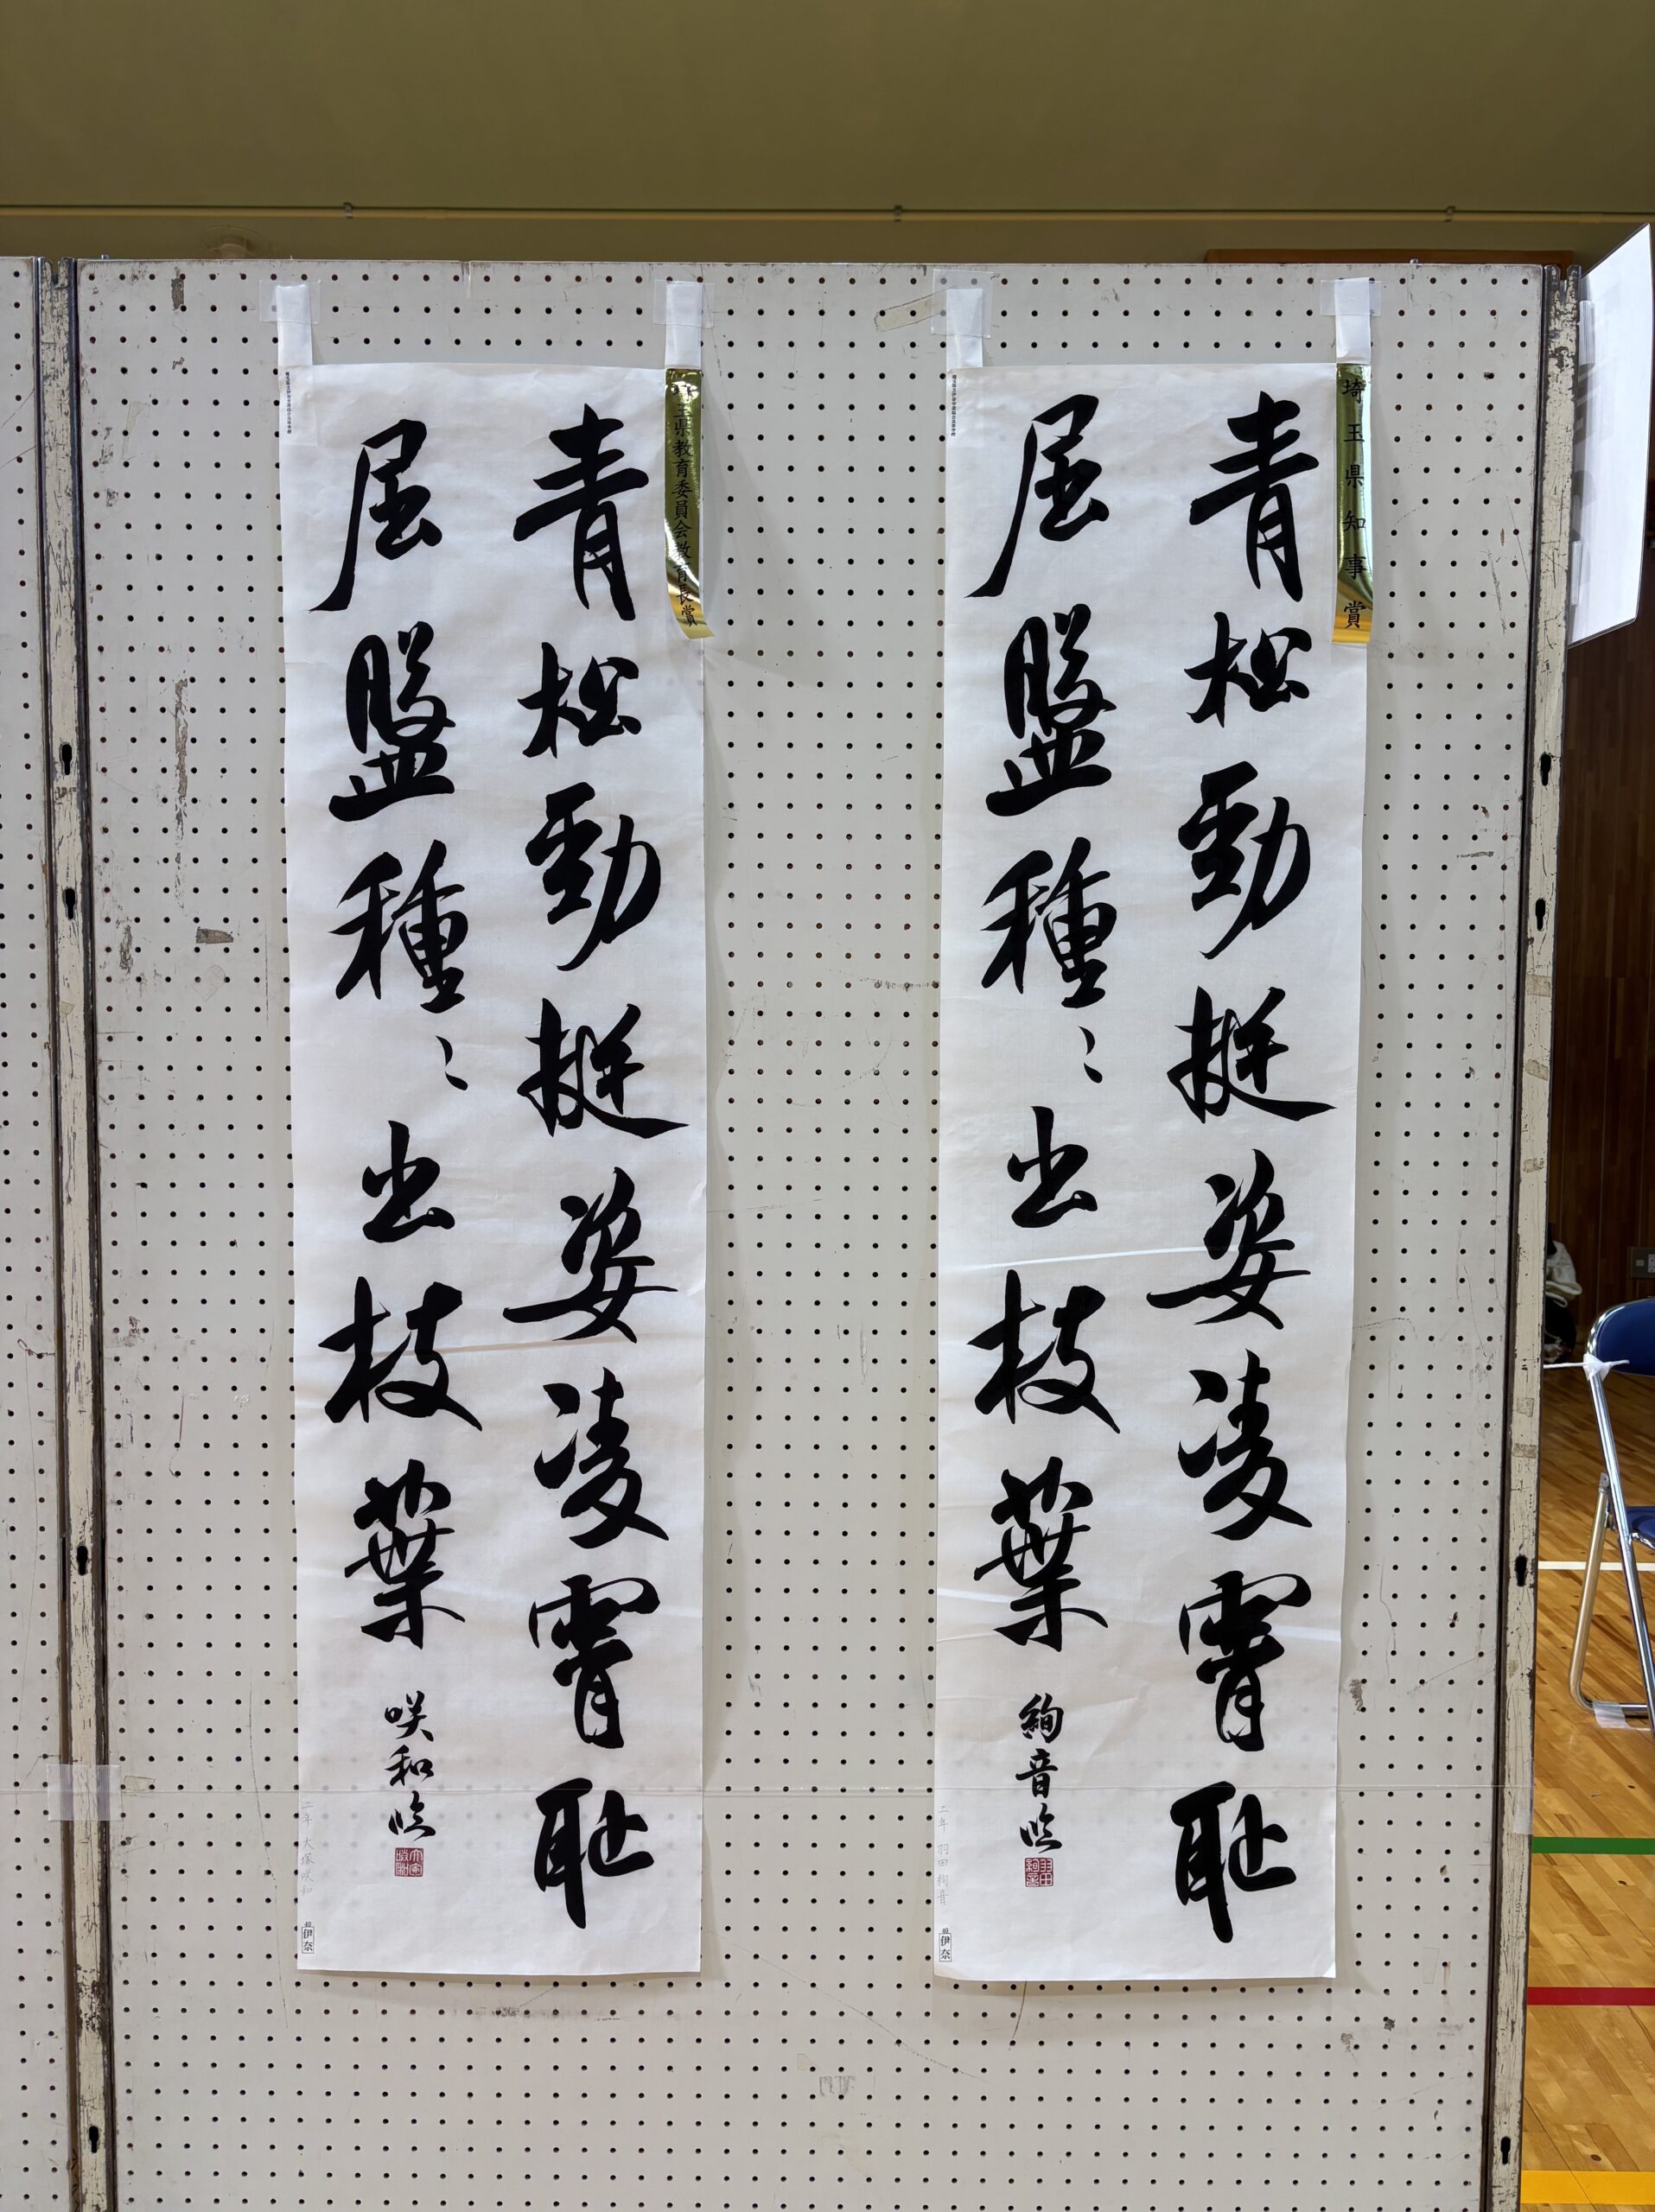 埼玉県知事賞
青松勁挺姿凌霄耻
屈盤種〻出枝葉
絢音臨
二年 羽田絢音
伊奈
埼玉県教育委員会教育長賞
青松勁挺姿凌霄耻
屈盤種〻出枝葉
咲和臨
二年 大塚咲和
伊奈